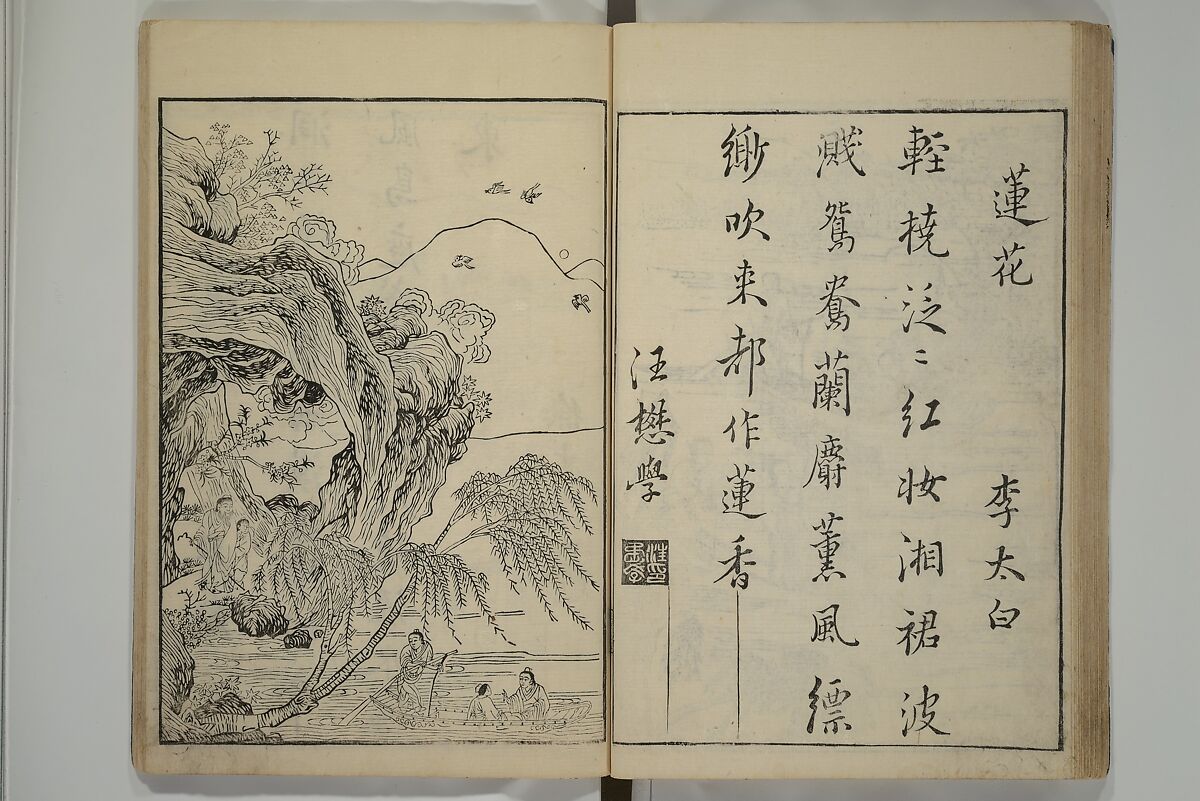 蓮花　李太白
輕橈泛〻紅妝湘裙波
濺鴛鴦蘭麝薰風縹
緲吹来都作蓮香
汪懋學